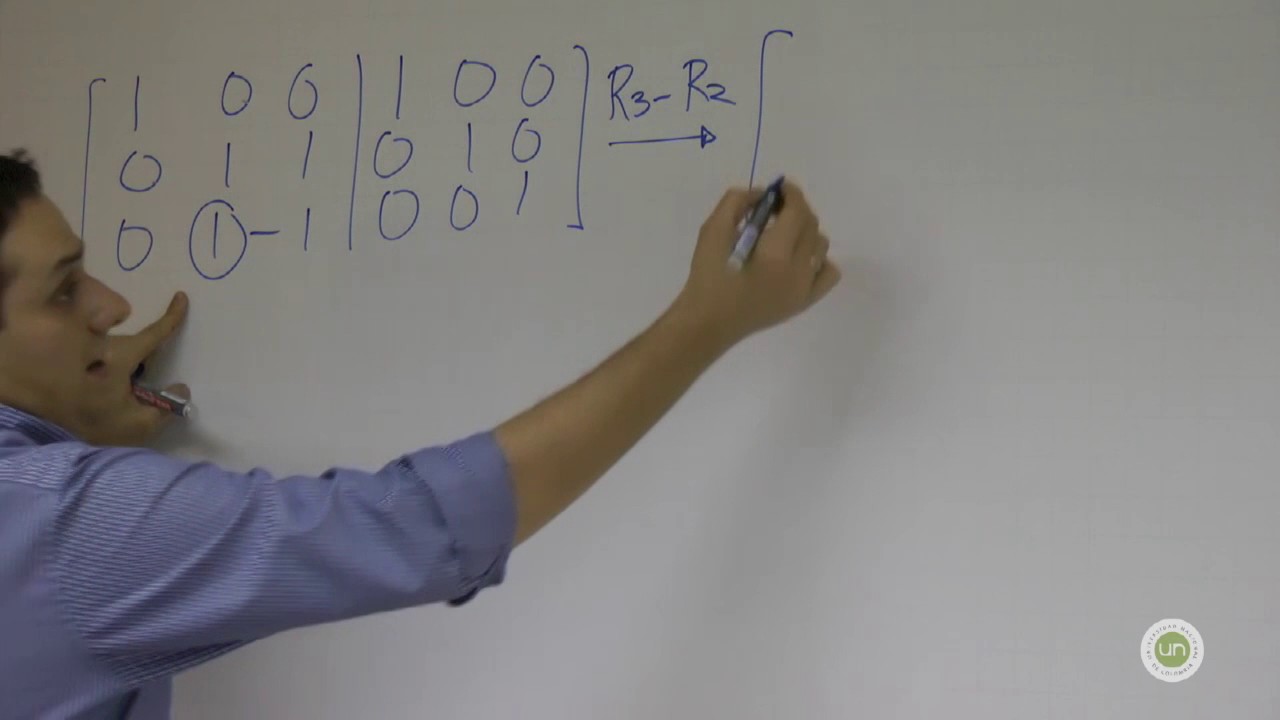 1 0 0 | 1 0 0 R3 - R2
0 1 1 | 0 1 0
0 1 - 1 | 0 0 1
un
UNIVERSIDAD NACIONAL DE COLOMBIA